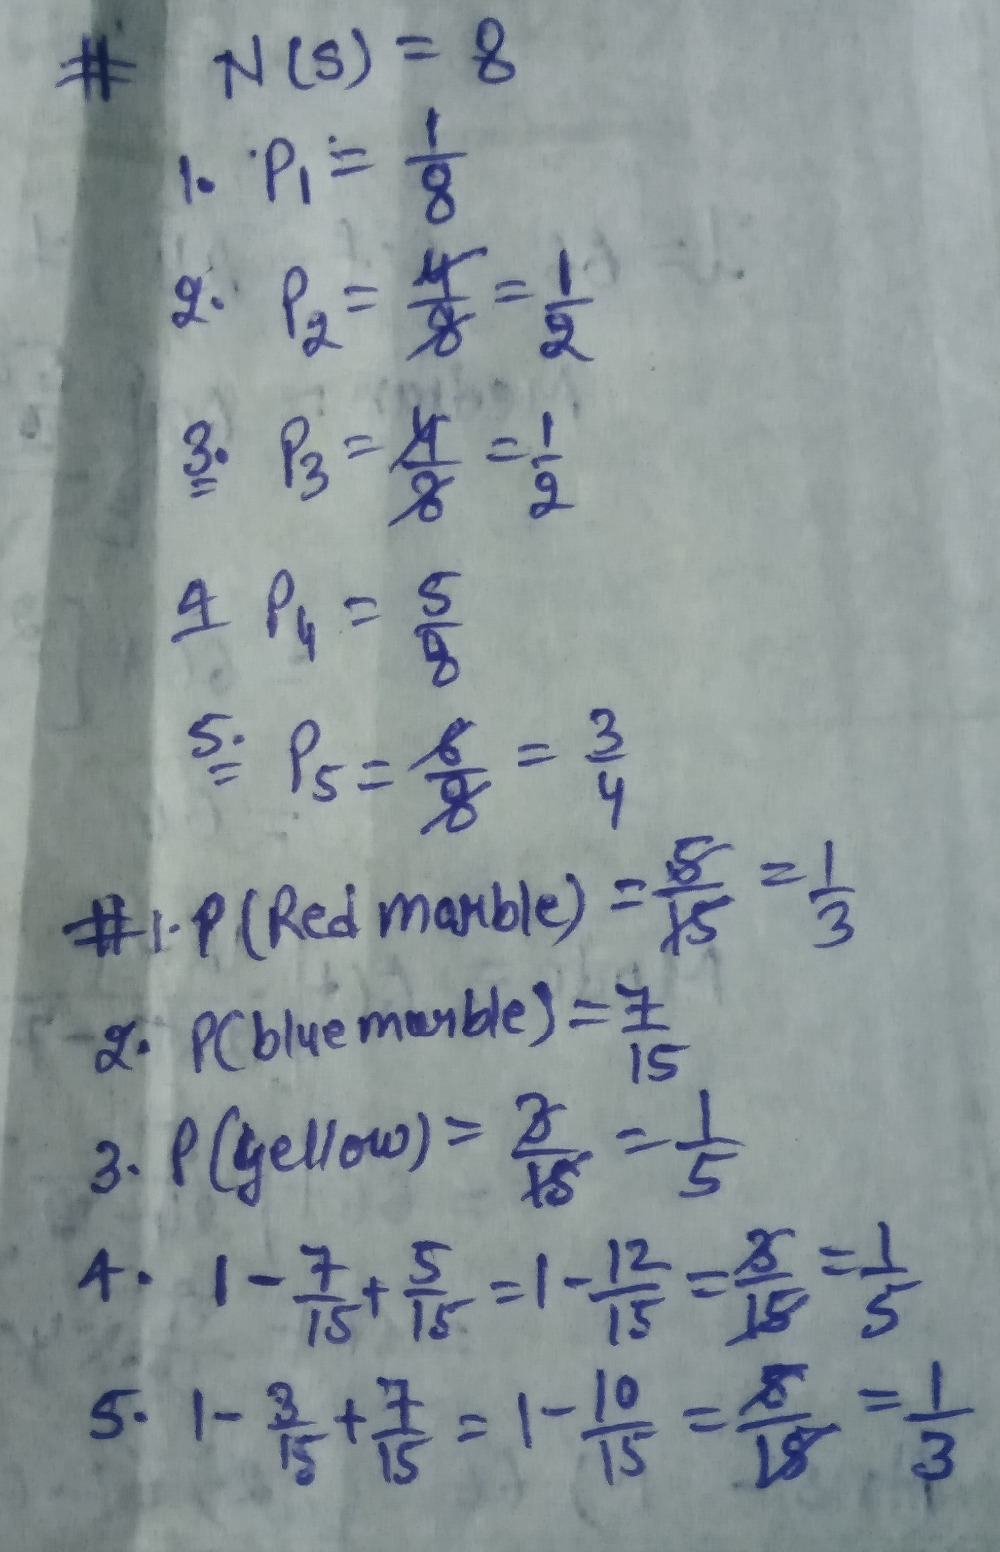 # N(S) = 8
1. P₁ = 1/8
2. P₂ = 4/8 = 1/2
3. P₃ = 4/8 = 1/2
4 P₄ = 5/8
5. P₅ = 6/8 = 3/4
# 1. P(Red marble) = 5/15 = 1/3
2. P(blue marble) = 7/15
3. P(yellow) = 3/15 = 1/5
4. 1 - 7/15 + 5/15 = 1 - 12/15 = 3/15 = 1/5
5. 1 - 3/15 + 7/15 = 1 - 10/15 = 5/15 = 1/3